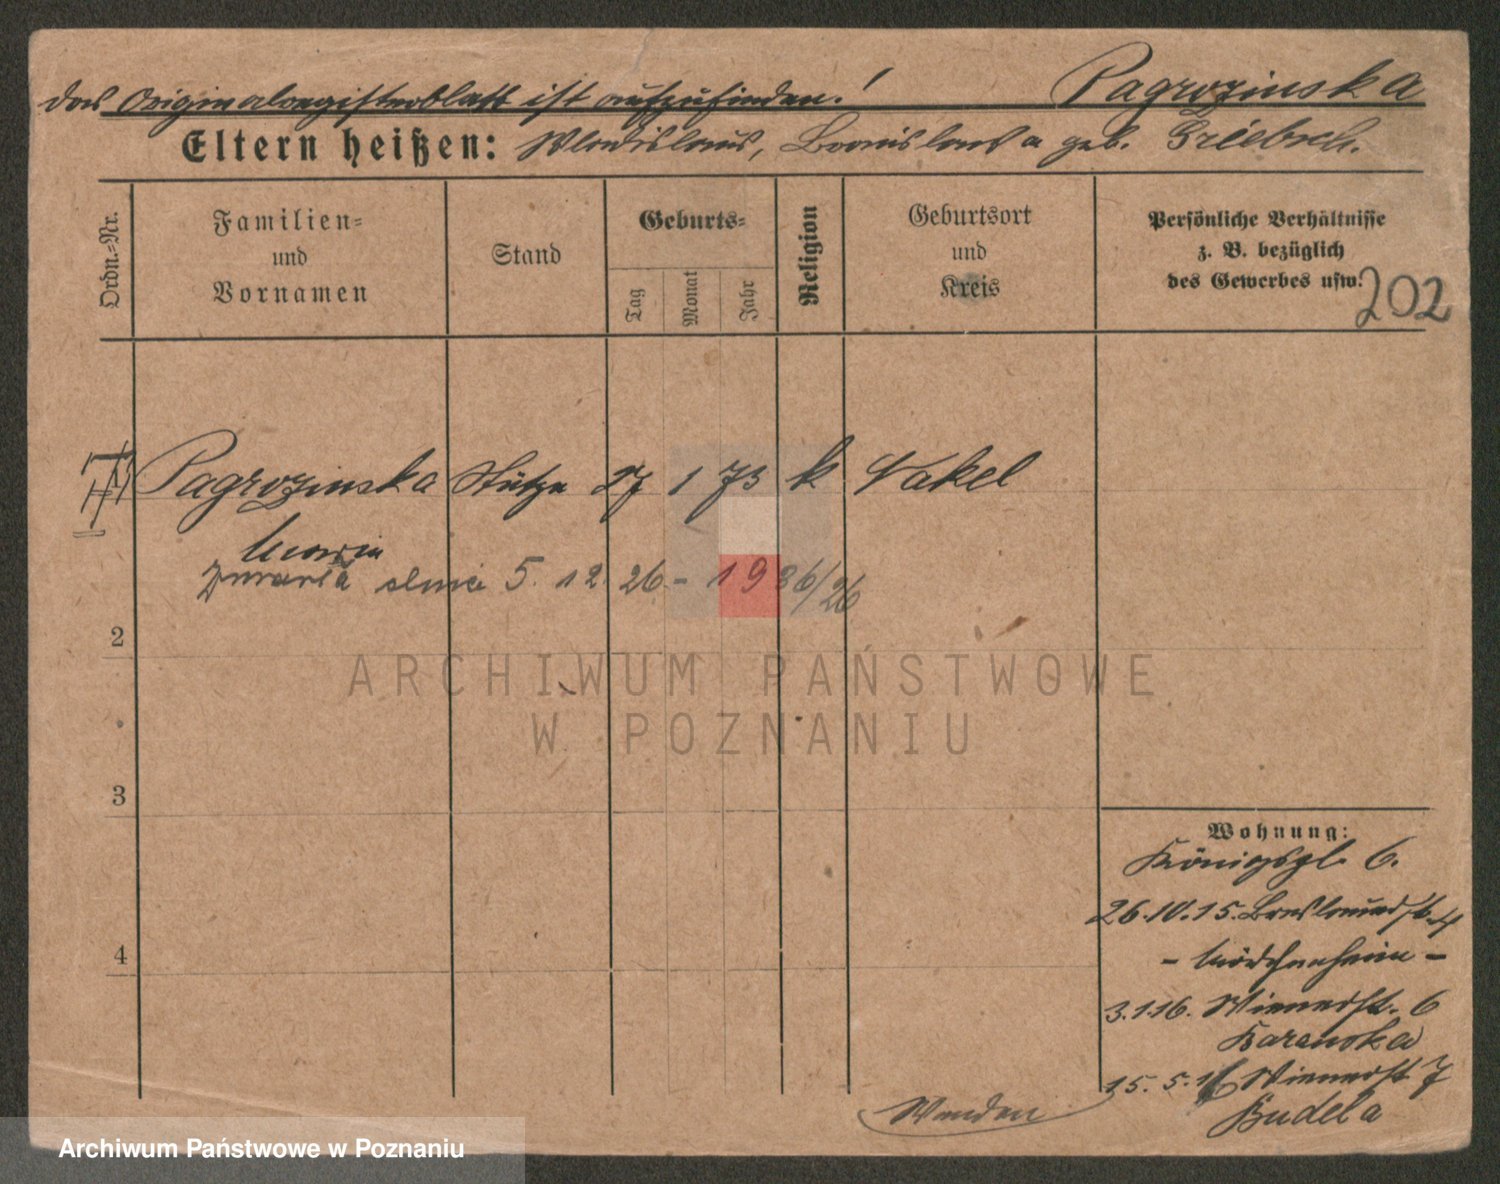 das Originalregisterblatt ist aufzufinden!
Pagrozinska
Eltern heißen: Wladislaus, Bronislawa geb. Griebsch.
Ordn.-Nr.
Familien-
und
Vornamen
Stand
Geburts-
Tag
Monat
Jahr
Religion
Geburtsort
und
Kreis
Persönliche Verhältnisse
z. B. bezüglich
des Gewerbes usw.
202
Pagrozinska Stütze 27 1 73 k Nakel
Maria
zmarła dnia 5. 12. 26 - 1936/26
2
3
4
Wohnung:
Königspl. 6.
26.10.15. Breslauerstr. 4
- Mädchenheim -
3.1.16. Wienerstr. 6
Karanska
15.5.16 Wienerstr 7
Budela
Wenden
ARCHIWUM PAŃSTWOWE
W POZNANIU
Archiwum Państwowe w Poznaniu